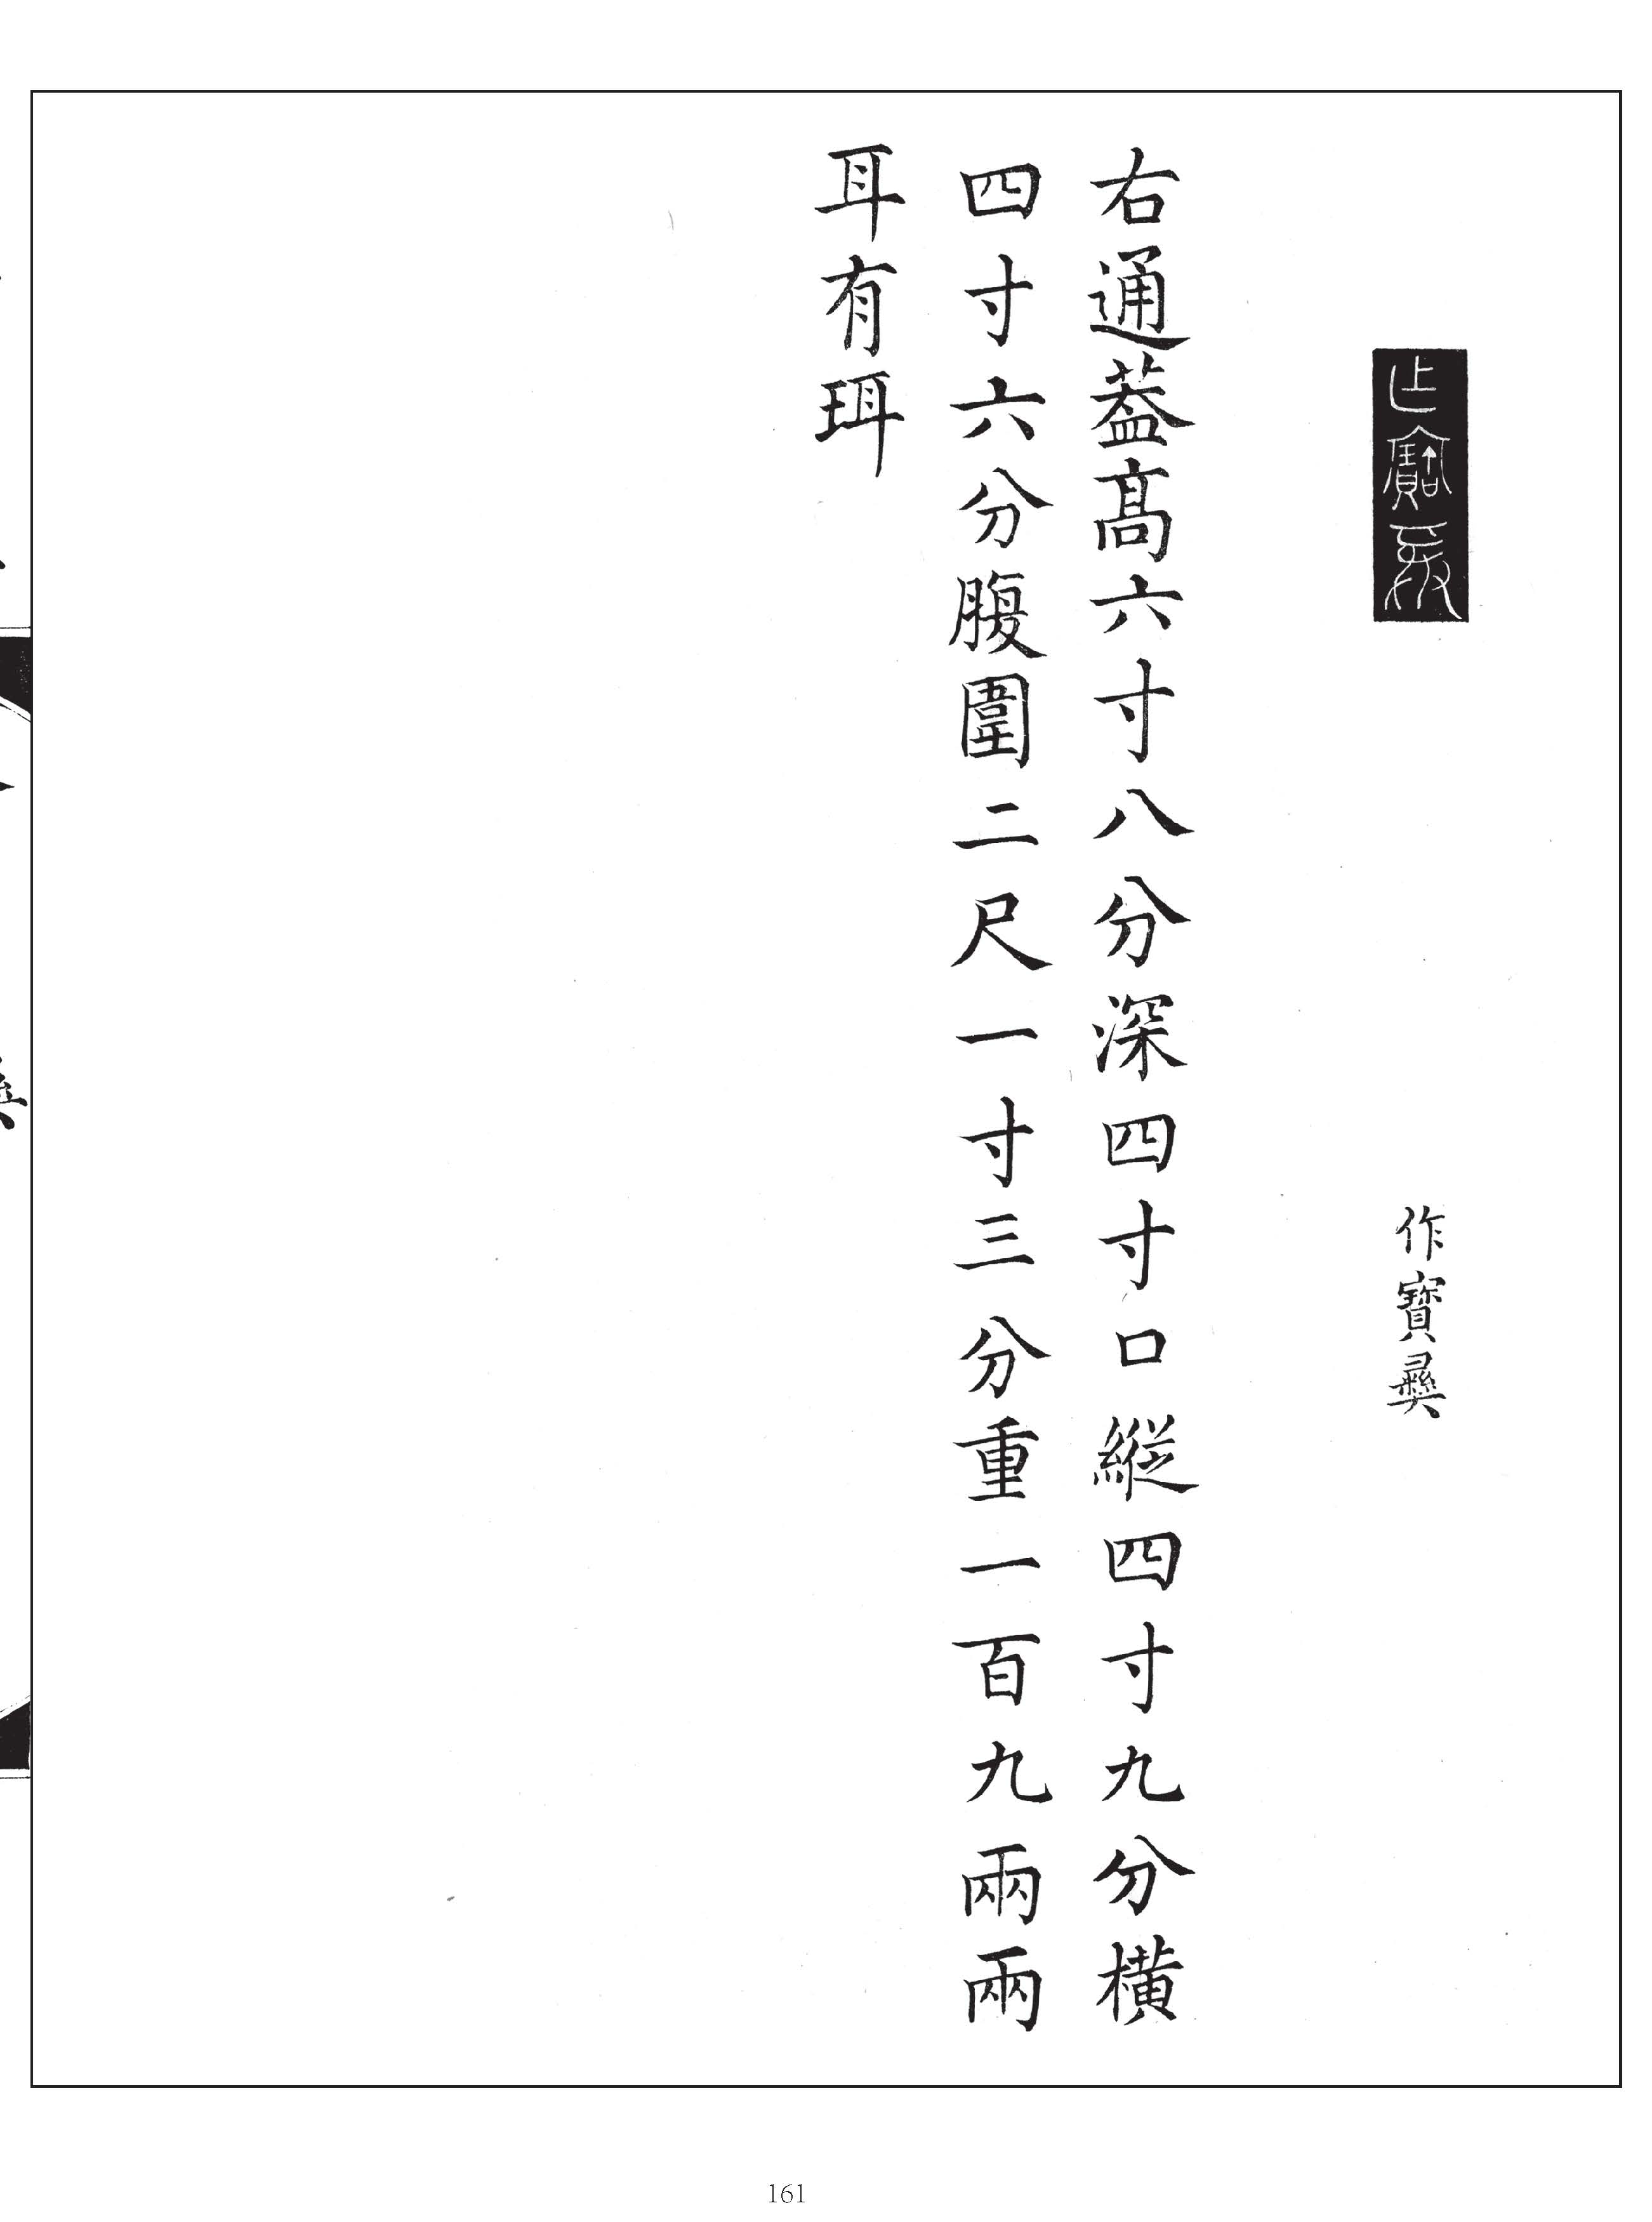 作寶彝
作寶彝
右通蓋高六寸八分深四寸口縱四寸九分橫
四寸六分腹圍二尺一寸三分重一百九兩兩
耳有珥
161